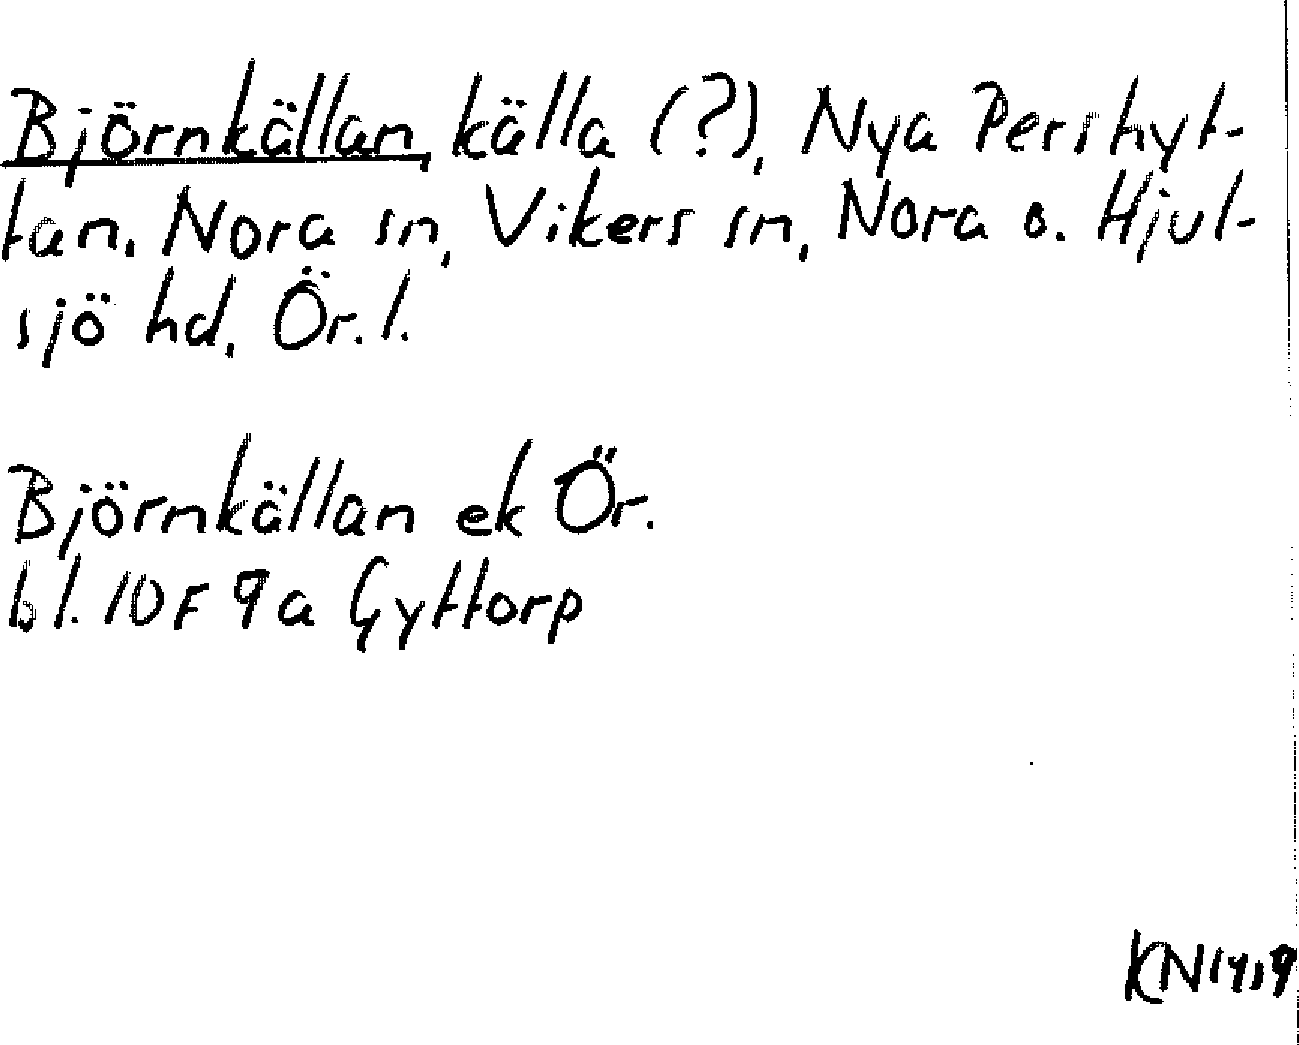 Björnkällan, källa (?), Nya Pershyt-
tan. Nora sn, Vikers sn, Nora o. Hjul-
sjö hd, Ör. l.
Björnkällan ek Ör.
bl. 10F 9a Gyttorp